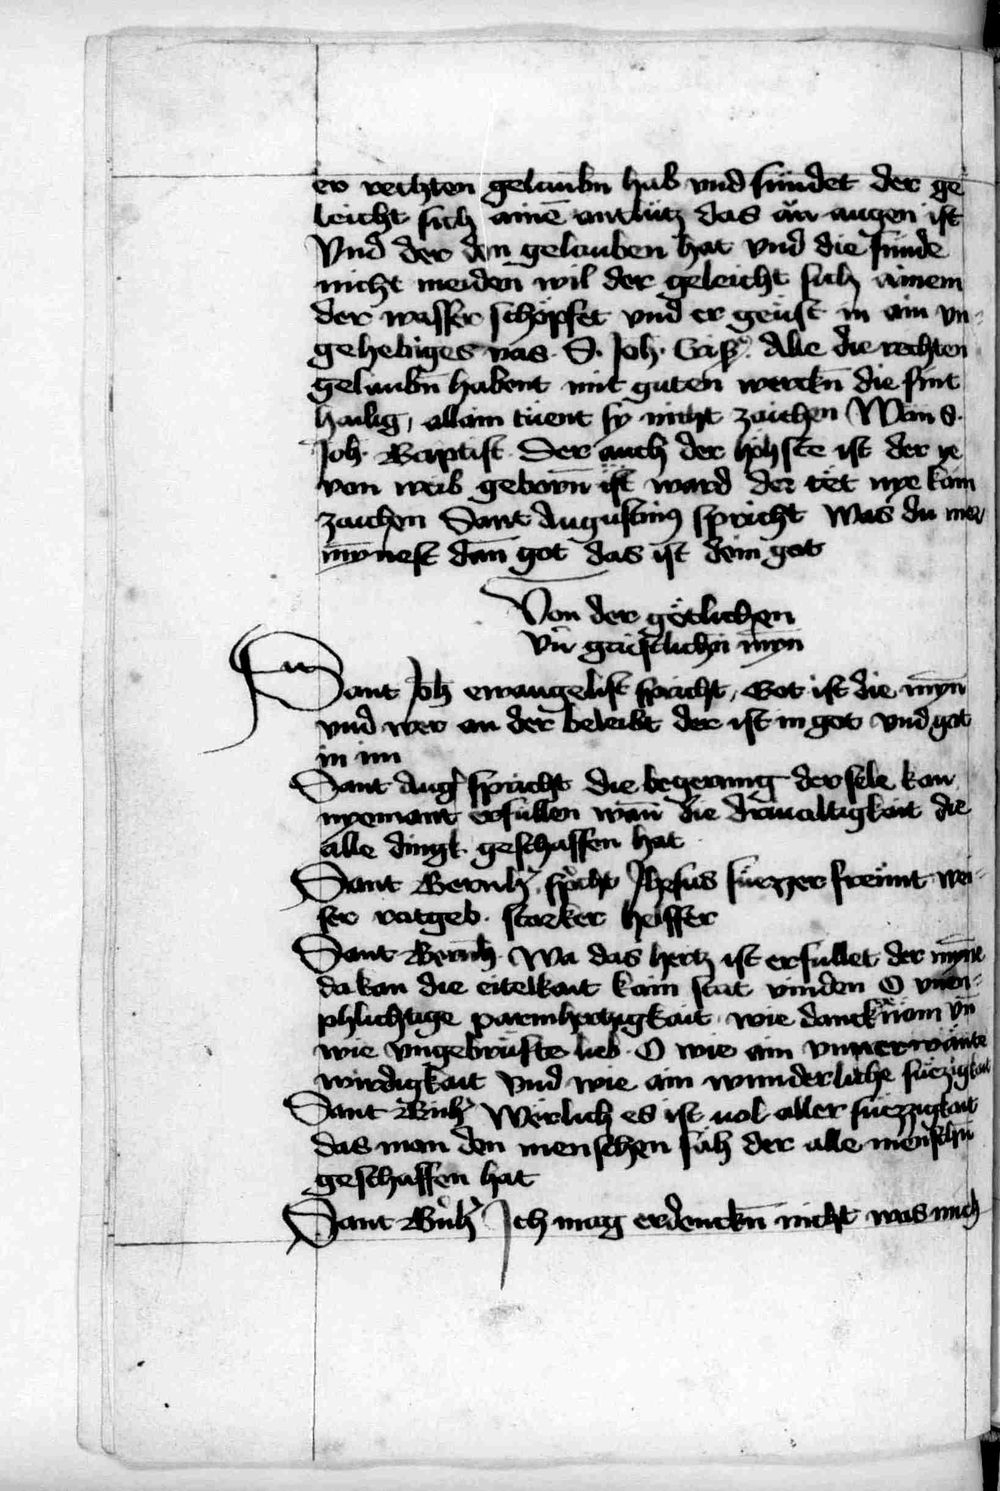 er rechten gelaubn hab vnd sündet der ge
leicht sich ainē antlütz das än augen ist
Vnd der den gelauben hat vnd die sünde
nicht meiden wil der geleicht sich ainem
der wasser schöpfet vnd er geüst in ain vn-
gehebiges vas. S. Joh. Alle die rechten
gelaubn̄ habent mit guten werckn̄ die sint
hailig, allain tüent sy nicht zaichen Wan S.
Joh. Baptist. Der auch der höhste ist der ye
von weib geborn̄ ist ward der tët nye kain
zaichen Sant Augustinꝰ spricht Was du mer
mynnest dan̄ got das ist dein got
Von der götlichen
vn̄ gaistlichn̄ myn̄
Sant Joh ewangelist spricht, Got ist die myn̄
vnd wer an der beleibt der ist in got vnd got
in im
Sant Aug spricht die begerung der sele kan
nyemant erfüllen wan̄ die driualtigkait die
alle dingk geschaffen hat
Sant Bernh spricht Jhesus süezzer freünt wei-
ser ratgeb. starker helffer
Sant Bernh. Wa das hertz ist erfullet der mynne
da kan die eitelkait kain stat vinden O vnen-
phlichtige parmhertzigkait wie danckn̄äm vn̄
wie vngebrüfte lieb. O wie ain vnuerwänte
wirdigkait vnd wie ain wunderliche süezigkait
Sant Bn̄h Wërlich es ist vol aller süezzigkait
das man den menschen säh der alle menschn̄
geschaffen hat
Sant Bn̄h Ich mag erdenckn̄ nicht was mich